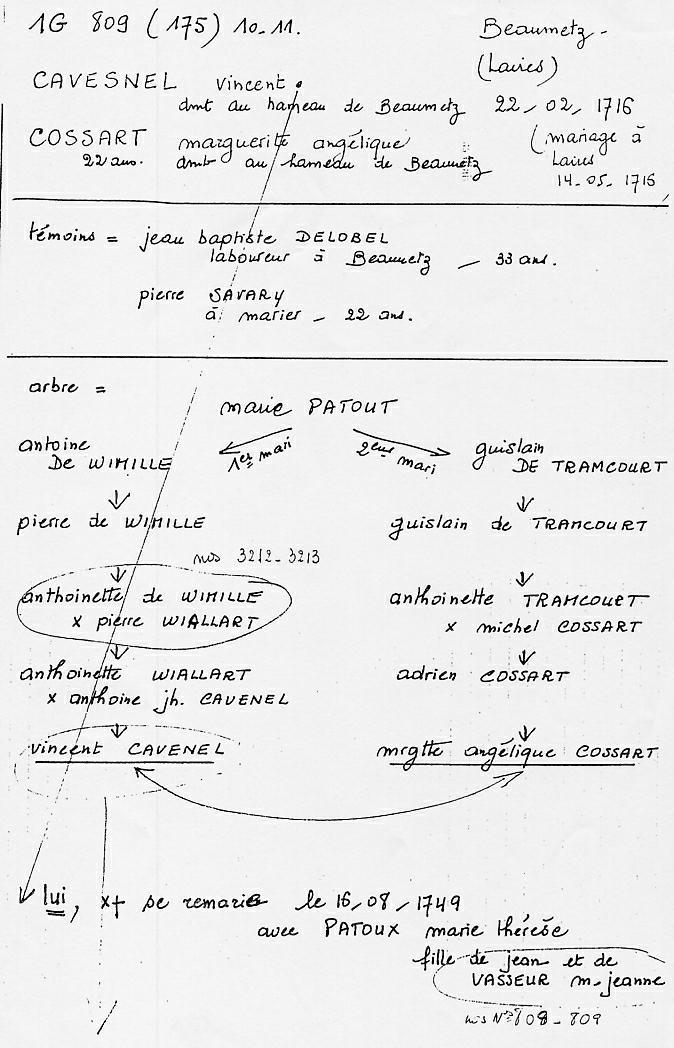 1G 809 (175) 10-11. Beaumetz -
(Laires)
CAVESNEL vincent.
dmt au hameau de Beaumetz 22-02-1716
COSSART marguerite angélique (mariage à
22 ans. dmt au hameau de Beaumetz Laires
14-05-1716
témoins = jean baptiste DELOBEL
laboureur à Beaumetz - 33 ans.
pierre SAVARY
à marier - 22 ans.
arbre =
marie PATOUT
antoine 1er mari 2eme mari guislain
De WIMILLE DE TRAMCOURT
pierre de WIMILLE guislain de TRAMCOURT
nos 3212-3213
anthoinette de WIMILLE anthoinette TRAMCOURT
x pierre WIALLART x michel COSSART
anthoinette WIALLART adrien COSSART
x anthoine jh. CAVENEL
vincent CAVENEL mrgtte angélique COSSART
lui, x+ se remarie le 16/08/1749
avec PATOUX marie thérèse
fille de jean et de
VASSEUR m-jeanne
nos N° 808-809